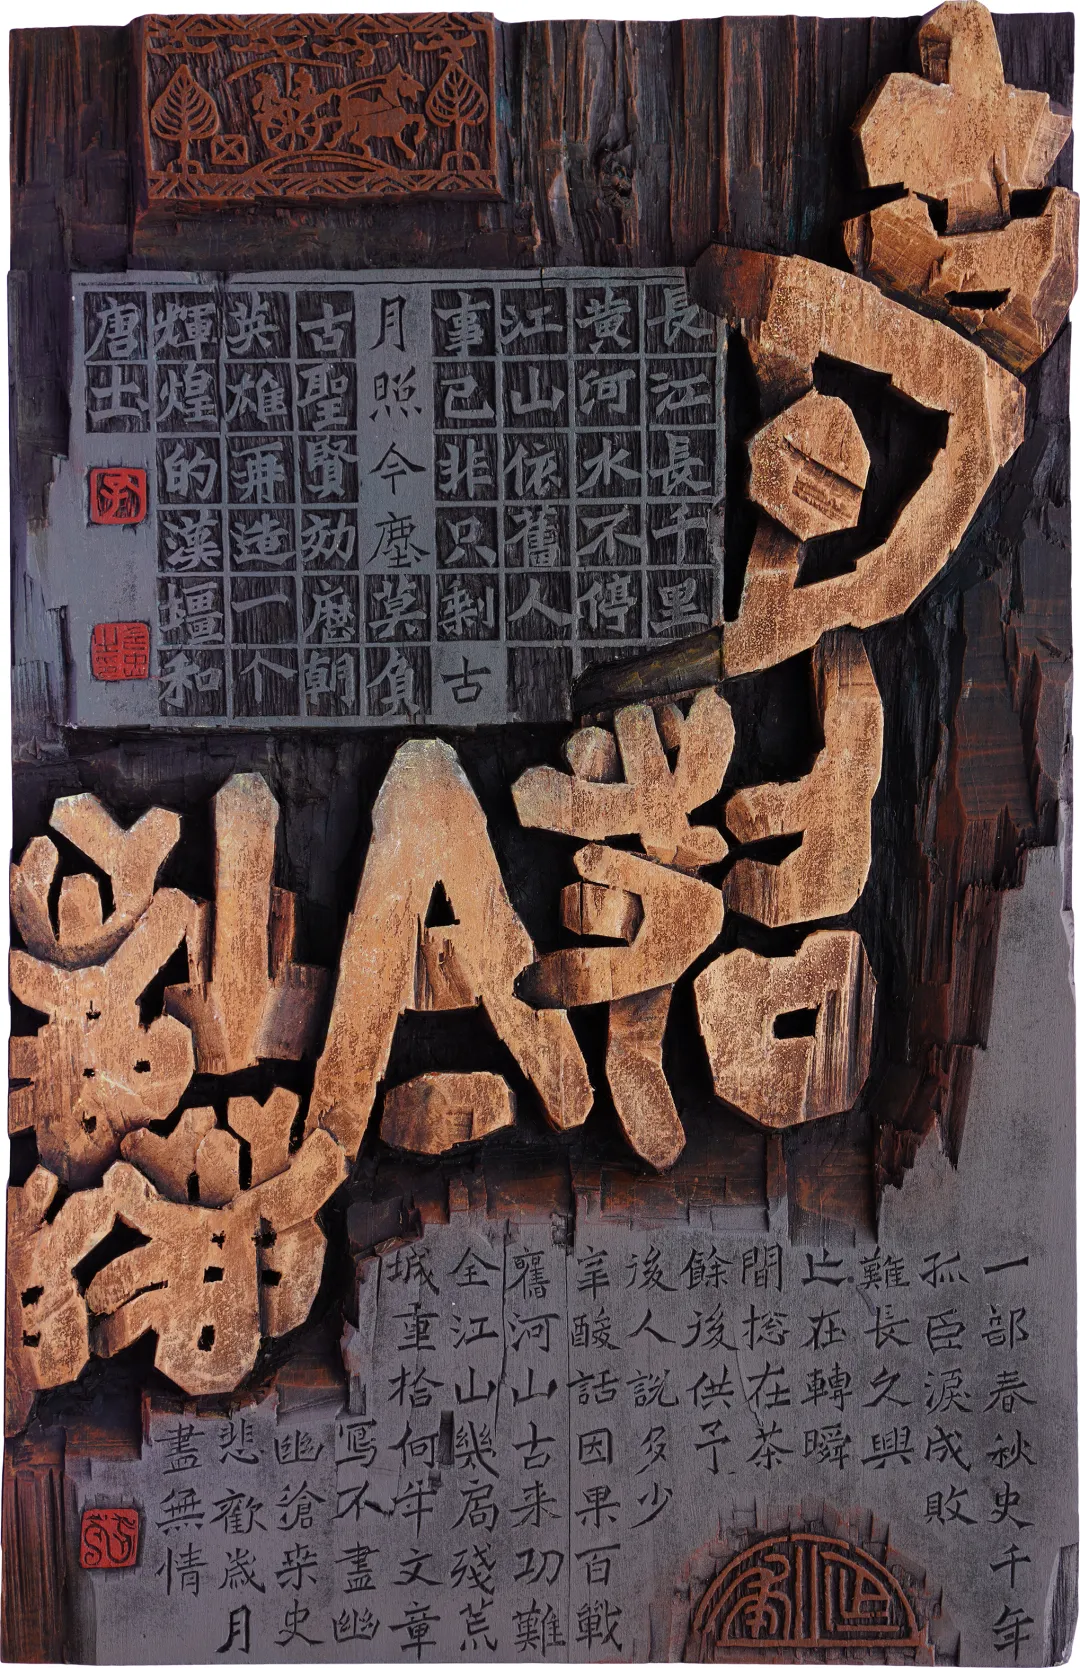 古月照今塵
長江長千里
黄河水不停
江山依舊人
事已非只剩古
月照今塵莫負
古聖賢効厯朝
英雄再造一个
輝煌的漢壃和
唐土
一部春秋史千年
孤臣淚成敗
難長久興
止在轉瞬
間捴在茶
餘後供予
後人說多少
辛酸話因果百戰
舊河山古来功難
全江山幾局殘荒
城重拾何年文章
寫不盡幽
幽滄桒史
悲歡歲月
盡無情